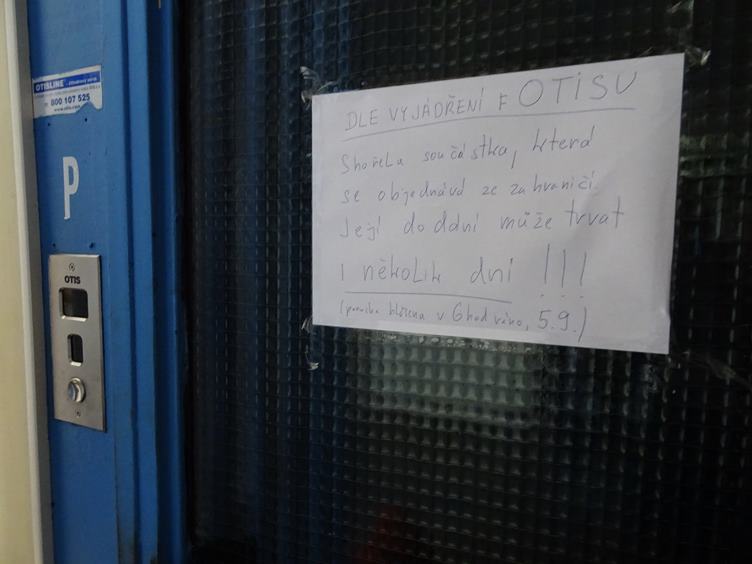 OTISLINE
800 107 525
www.otis.com
P
OTIS
DLE VYJÁDŘENÍ F OTISU
Shořela součástka, která
se objednává ze zahraničí.
Její dodání může trvat
i několik dní !!!
(porucha hlášena v 6 hod ráno, 5.9.)